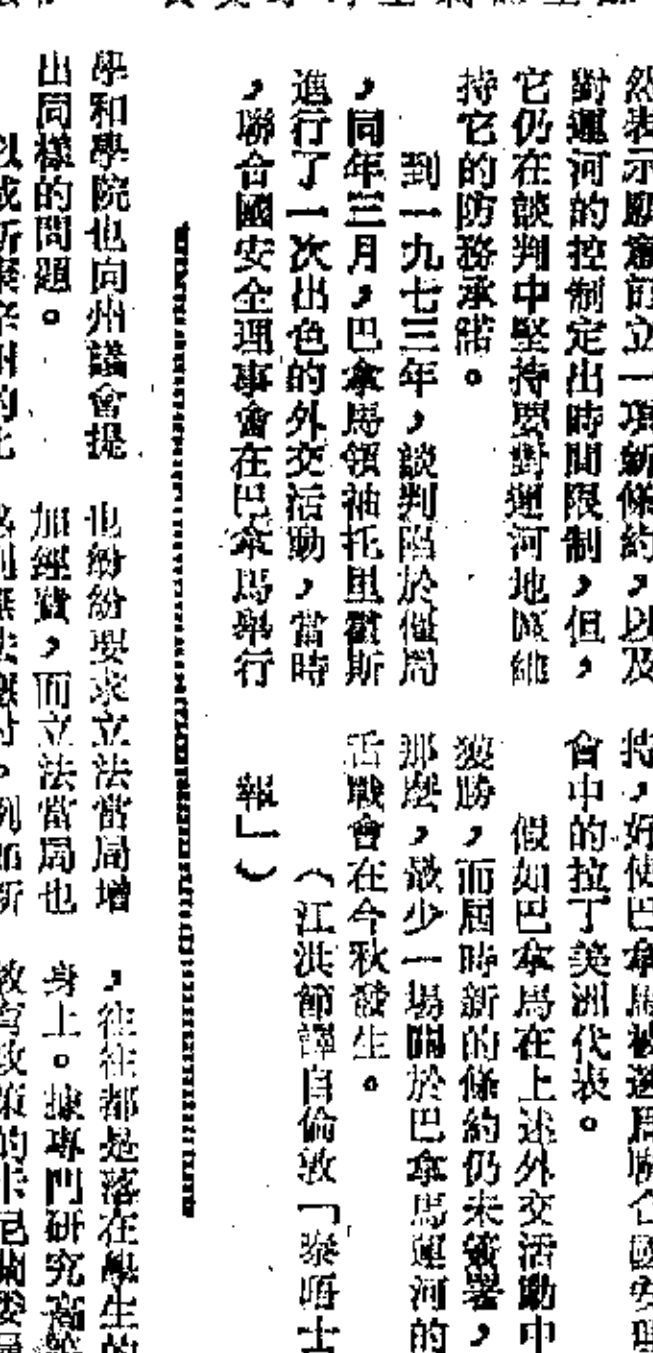 然表示願意訂立一項新條約，以及
對運河的控制定出時間限制，但，
它仍在談判中堅持要對運河地區維
持它的防務承諾。
到一九七三年，談判陷於僵局
，同年三月，巴拿馬領袖托里霍斯
進行了一次出色的外交活動，當時
，聯合國安全理事會在巴拿馬舉行
持，好使巴拿馬被選爲聯合國安理
會中的拉丁美洲代表。
假如巴拿馬在上述外交活動中
獲勝，而屆時新的條約仍未簽署，
那麽，最少一場關於巴拿馬運河的
舌戰會在今秋發生。
（江洪節譯自倫敦「泰晤士
報」）
學和學院也向州議會提
出同樣的問題。
也紛紛要求立法當局增
加經費，而立法當局也
，往往都是落在學生的
身上。據專門研究高等
教育政策的卡尼蘭委員